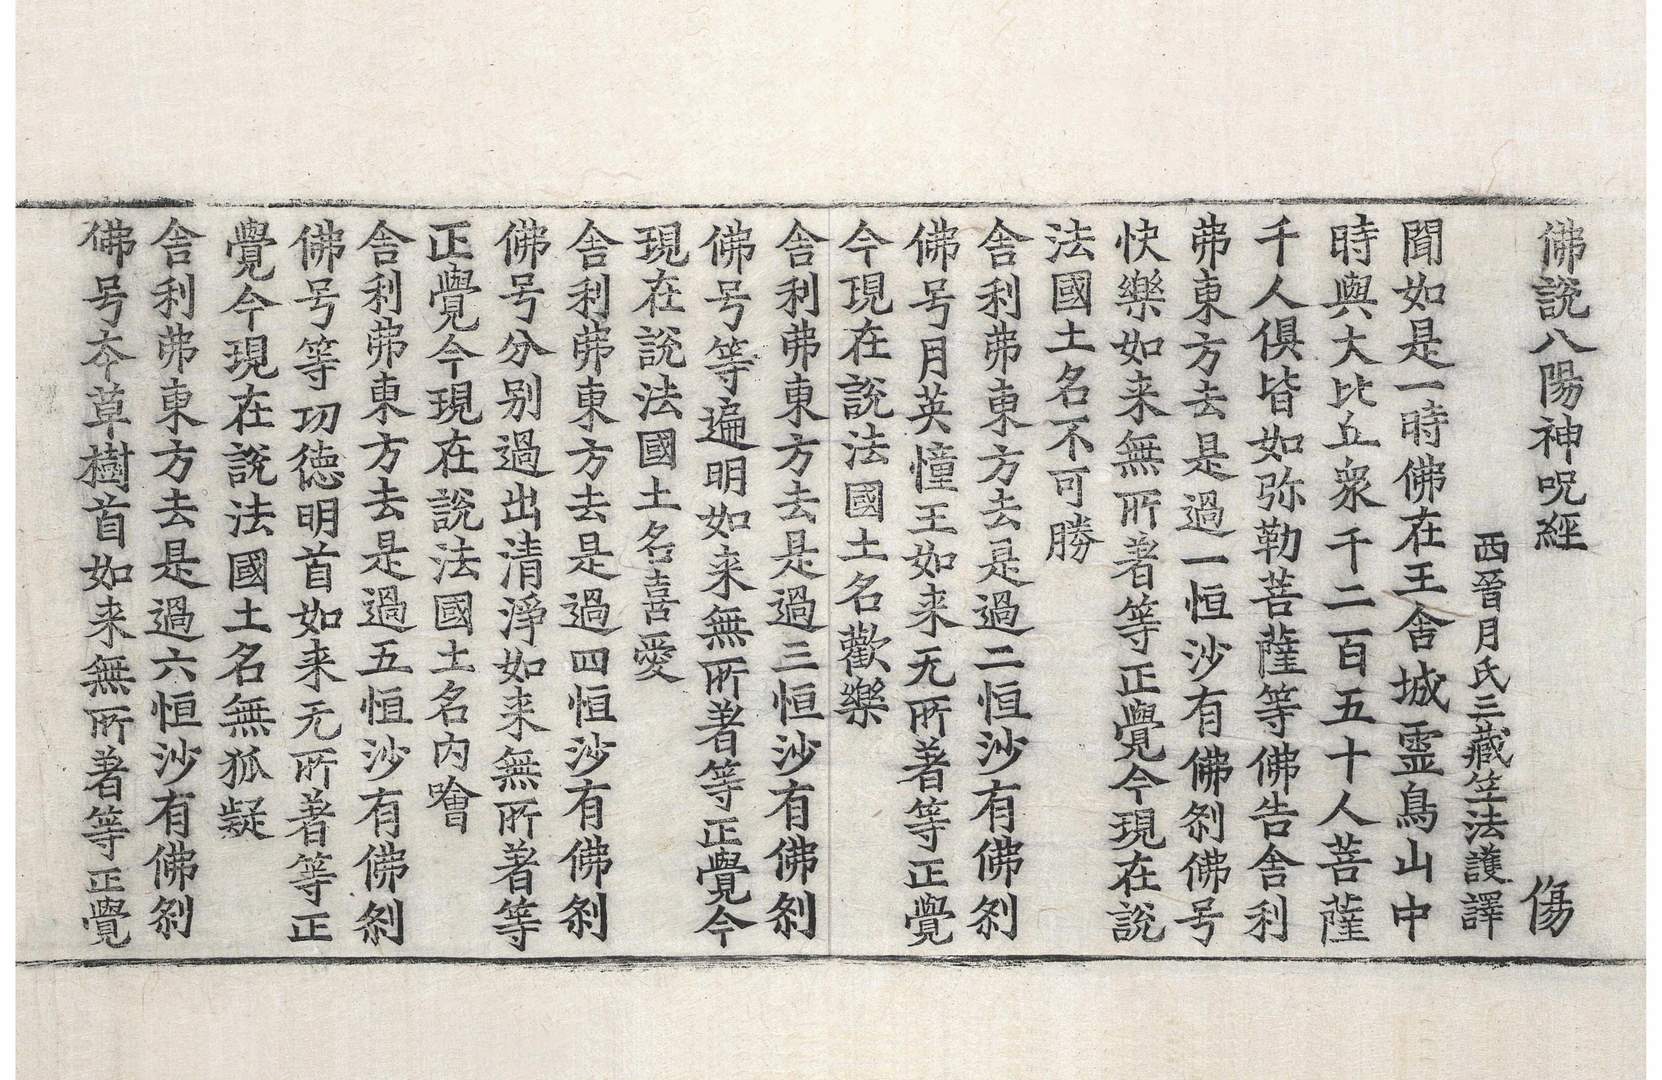 佛說八陽神呪經 傷
西晉月氏三藏竺法護譯
聞如是一時佛在王舍城靈鳥山中
時與大比丘衆千二百五十人菩薩
千人俱皆如弥勒菩薩等佛告舍利
弗東方去是過一恒沙有佛刹佛号
快樂如来無所著等正覺今現在說
法國土名不可勝
舍利弗東方去是過二恒沙有佛刹
佛号月英幢王如来无所著等正覺
今現在說法國土名歡樂
舍利弗東方去是過三恒沙有佛刹
佛号等遍明如来無所著等正覺今
現在說法國土名喜愛
舍利弗東方去是過四恒沙有佛刹
佛号分别過出清淨如来無所著等
正覺今現在說法國土名内噲
舍利弗東方去是過五恒沙有佛刹
佛号等功德明首如来无所著等正
覺今現在說法國土名無狐疑
舍利弗東方去是過六恒沙有佛刹
佛号夲草樹首如来無所著等正覺